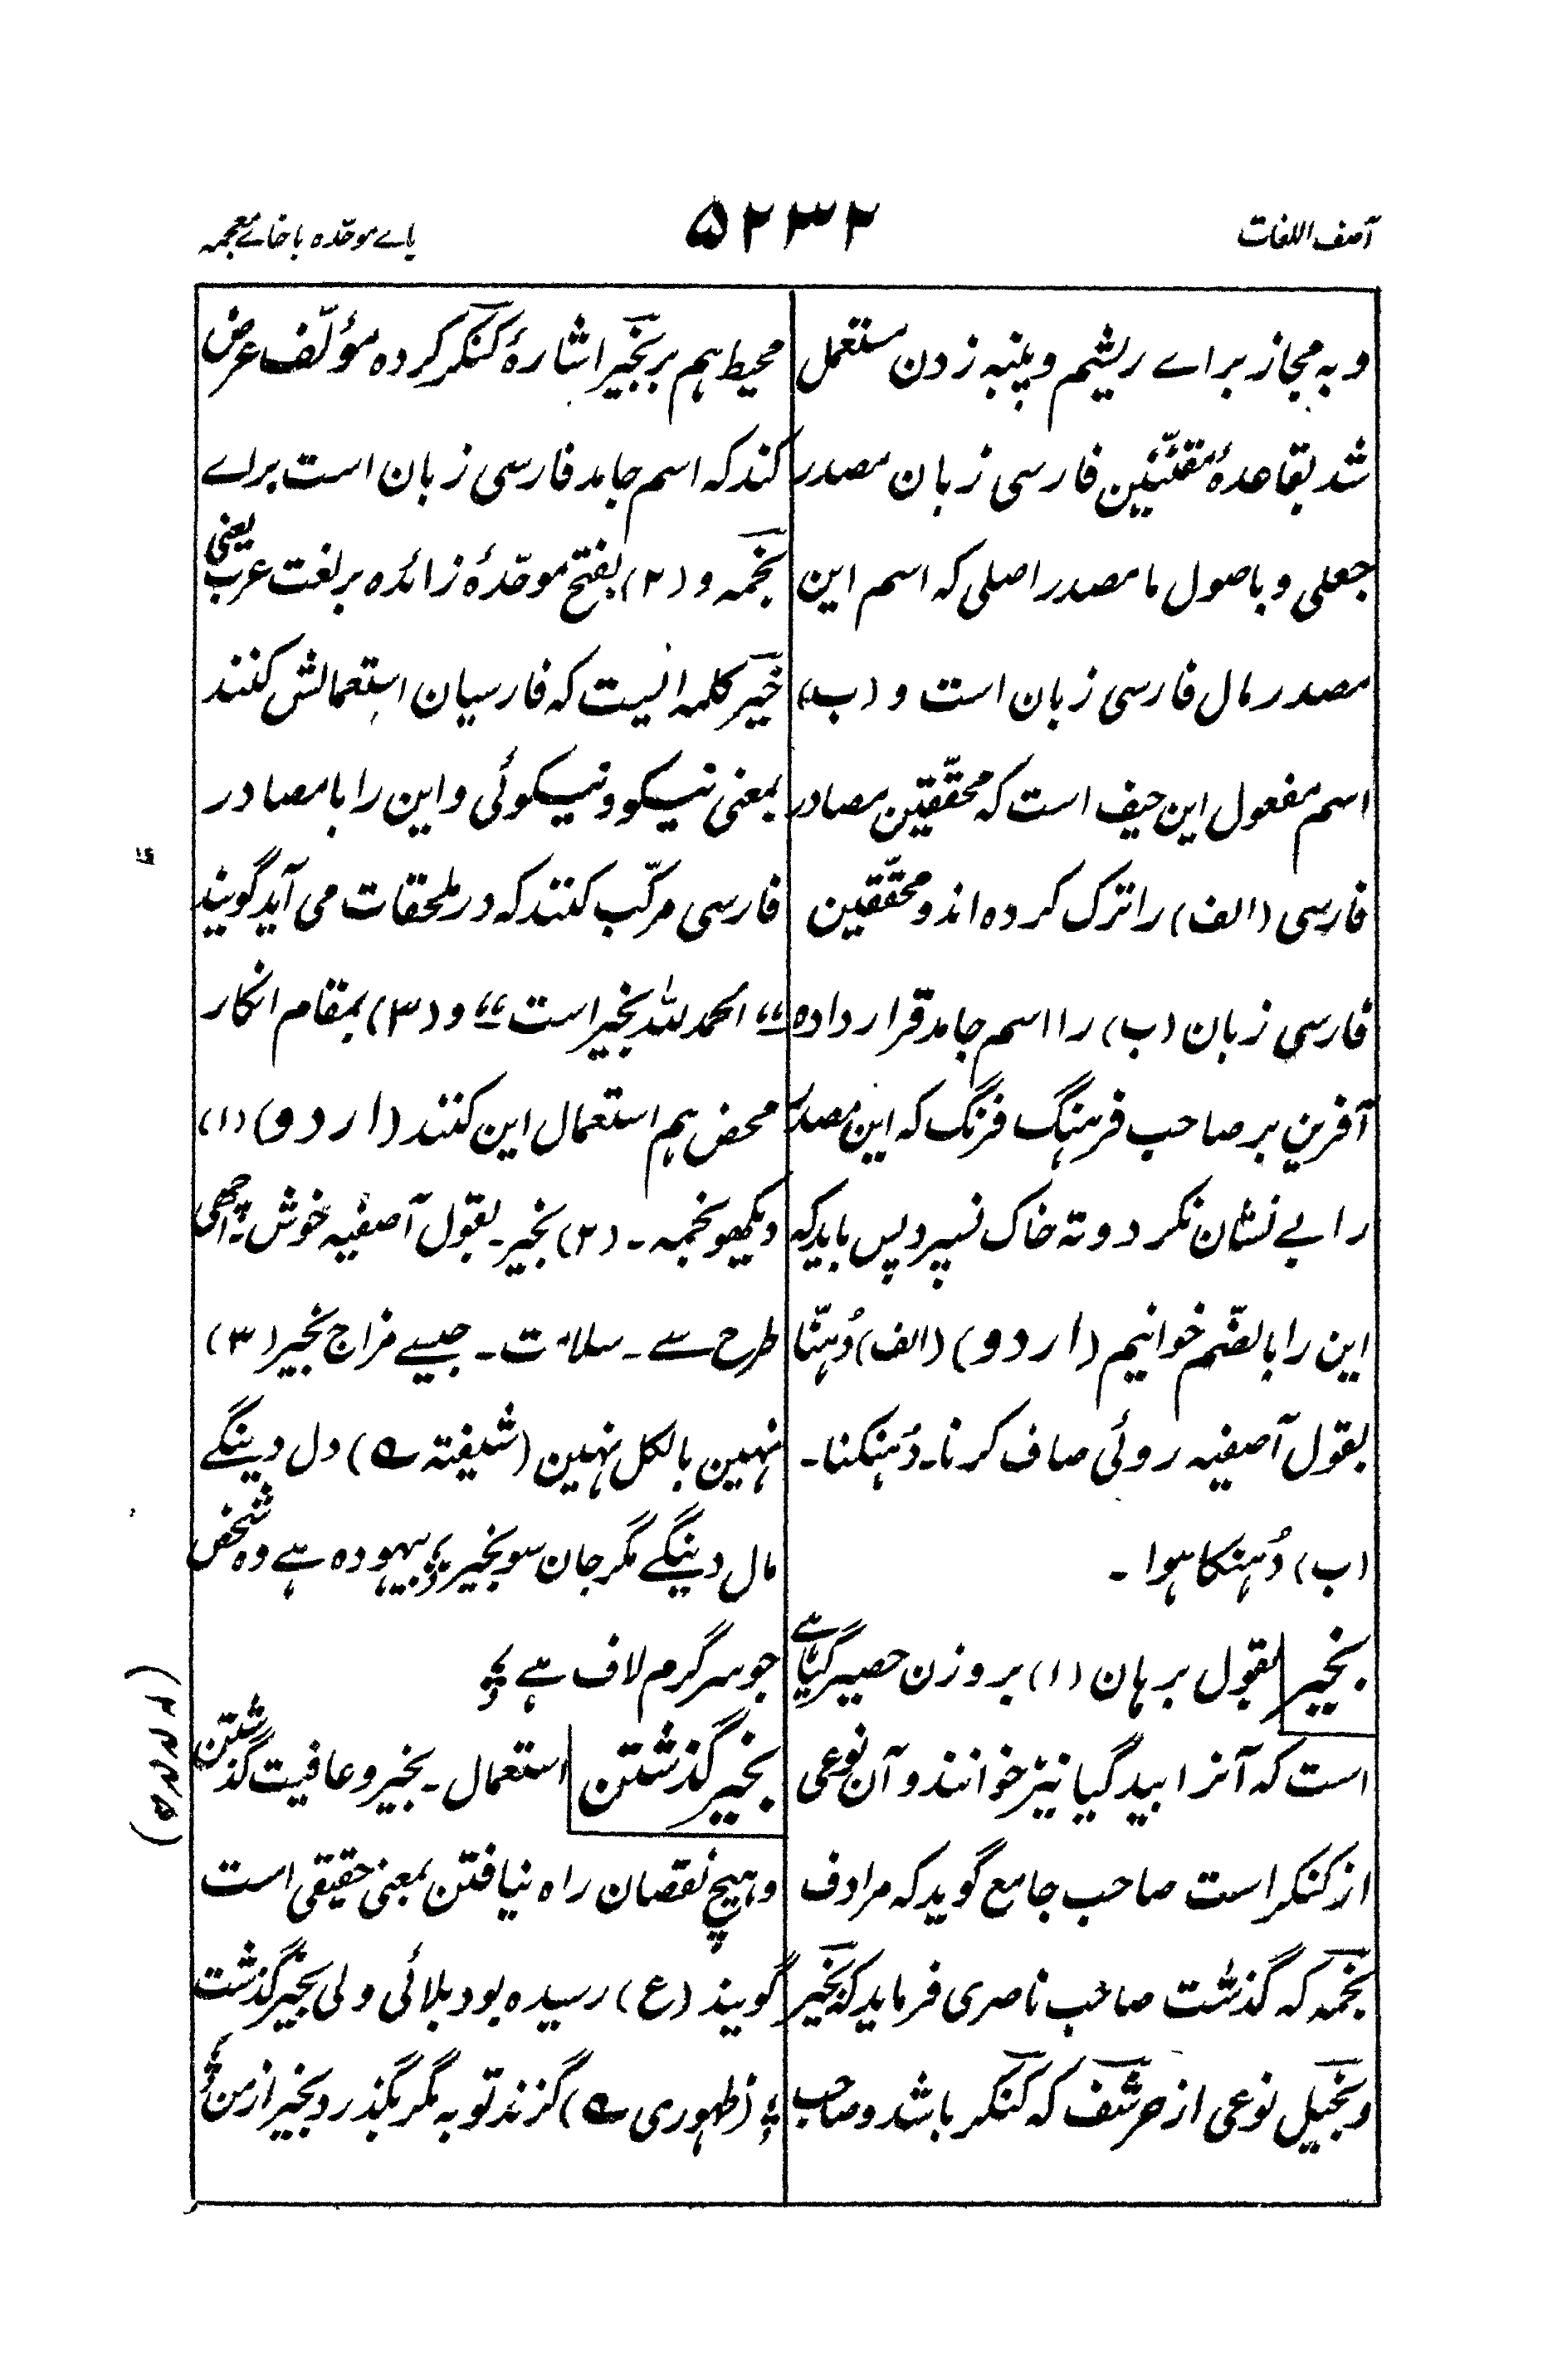 آصف اللغات
۵۲۳۲
باے موحّدہ باخاے معجمہ
و بہ مجاز براے ریشم و پنبہ زدن مستعمل
شد بقاعدۂ مقنّنین فارسی زبان مصدر
جعلی و باصول ما مصدر اصلی کہ اسم این
مصدر مال فارسی زبان است و (ب)
اسم مفعول این حیف است کہ محقّقین مصادر
فارسی (الف) را ترک کردہ اند و محقّقین
فارسی زبان (ب) را اسم جامد قرار دادہ
آفرین بر صاحب فرہنگ فرنگ کہ این مصدر
را بے نشان نکرد و تہ خاک نسپرد پس باید کہ
این را بالضّم خوانیم (اردو) (الف) دُہنّنا
بقول آصفیہ روئی صاف کرنا۔ دُہنکنا۔
(ب) دُہنکا ہوا۔
بخیر بقول برہان (۱) بروزن حصیر گیاہے
است کہ آنرا بید گیا نیز خوانند و آن نوعی
از کنکر است صاحب جامع گوید کہ مرادف
بخمہ کہ گذشت صاحب ناصری فرماید کہ بخیر
و بخیل نوعی از حرشف کہ کنکر باشد و صاحب
محیط ہم بر بخیر اشارۂ کنکر کردہ مؤلّف عرض
کند کہ اسم جامد فارسی زبان است براے
بخمہ و (۲) بفتح موحّدۂ زائدہ بر لغت عرب یعنی
خیر کلمہ ایست کہ فارسیان استعمالش کنند
بمعنی نیکو و نیکوئی و این را با مصادر
فارسی مرکّب کنند کہ در ملحقات می آید گویند
«الحمد للہ بخیر است» و (۳) بمقام انکار
محض ہم استعمال این کنند (اردو) (۱)
دیکھو بخمہ۔ (۲) بخیر۔ بقول آصفیہ خوش۔ اچھی
طرح سے۔ سلامت۔ جیسے مزاج بخیر (۳)
نہین بالکل نہین (شیفتہ ؎) دل دینگے
مال دینگے مگر جان سو بخیر ؛ بیہودہ ہے وہ شخص
جو سرگرم لاف ہے ؛
بخیر گذشتن استعمال۔ بخیر و عافیت گذشتن
و ہیچ نقصان راہ نیافتن بمعنی حقیقی است
گویند (ع) رسیدہ بود بلائی ولی بخیر گذشت
؛ (ظہوری ؎) گزند توبہ مگر بگذرد بخیر از من ؛
(۵۲۳۲)